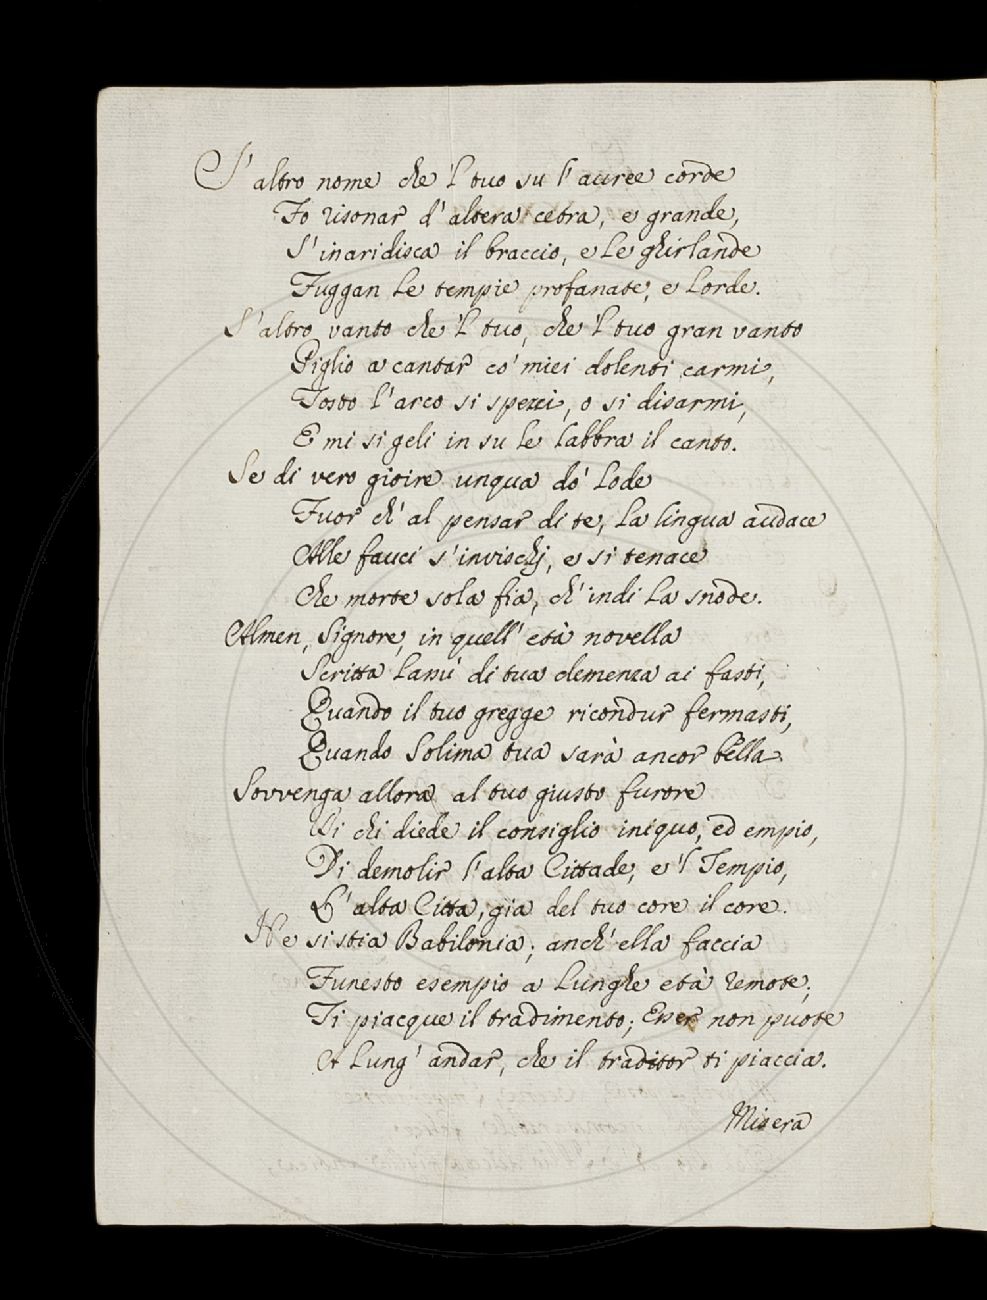 S' altro nome che 'l tuo su l' auree corde
Fo risonar d' altera cetra, e grande,
S' inaridisca il braccio, e le ghirlande
Fuggan le tempie profanate, e lorde.
S' altro vanto che 'l tuo, che 'l tuo gran vanto
Piglio a cantar co' miei dolenti carmi,
Tosto l' arco si spezzi, o si disarmi,
E mi si geli in su le labbra il canto.
Se di vero gioire unqua dò lode
Fuor ch' al pensar di te, la lingua audace
Alle fauci s' invischj, e si tenace
Che morte sola fia, ch' indi la snode.
Almen, Signore, in quell' età novella
Scritta lassù di tua clemenza ai fasti,
Quando il tuo gregge ricondur fermasti,
Quando Solima tua sarà ancor bella
Sovvenga allora al tuo giusto furore
Di chi diede il consiglio iniquo, ed empio,
Di demolir l' alta Cittade, e 'l Tempio,
L' alta Citta, gia del tuo core il core.
Ne si stia Babilonia; anch' ella faccia
Funesto esempio a lunghe età remote;
Ti piacque il tradimento; Esser non puote
A lung' andar, che il traditor ti piaccia.
Misera